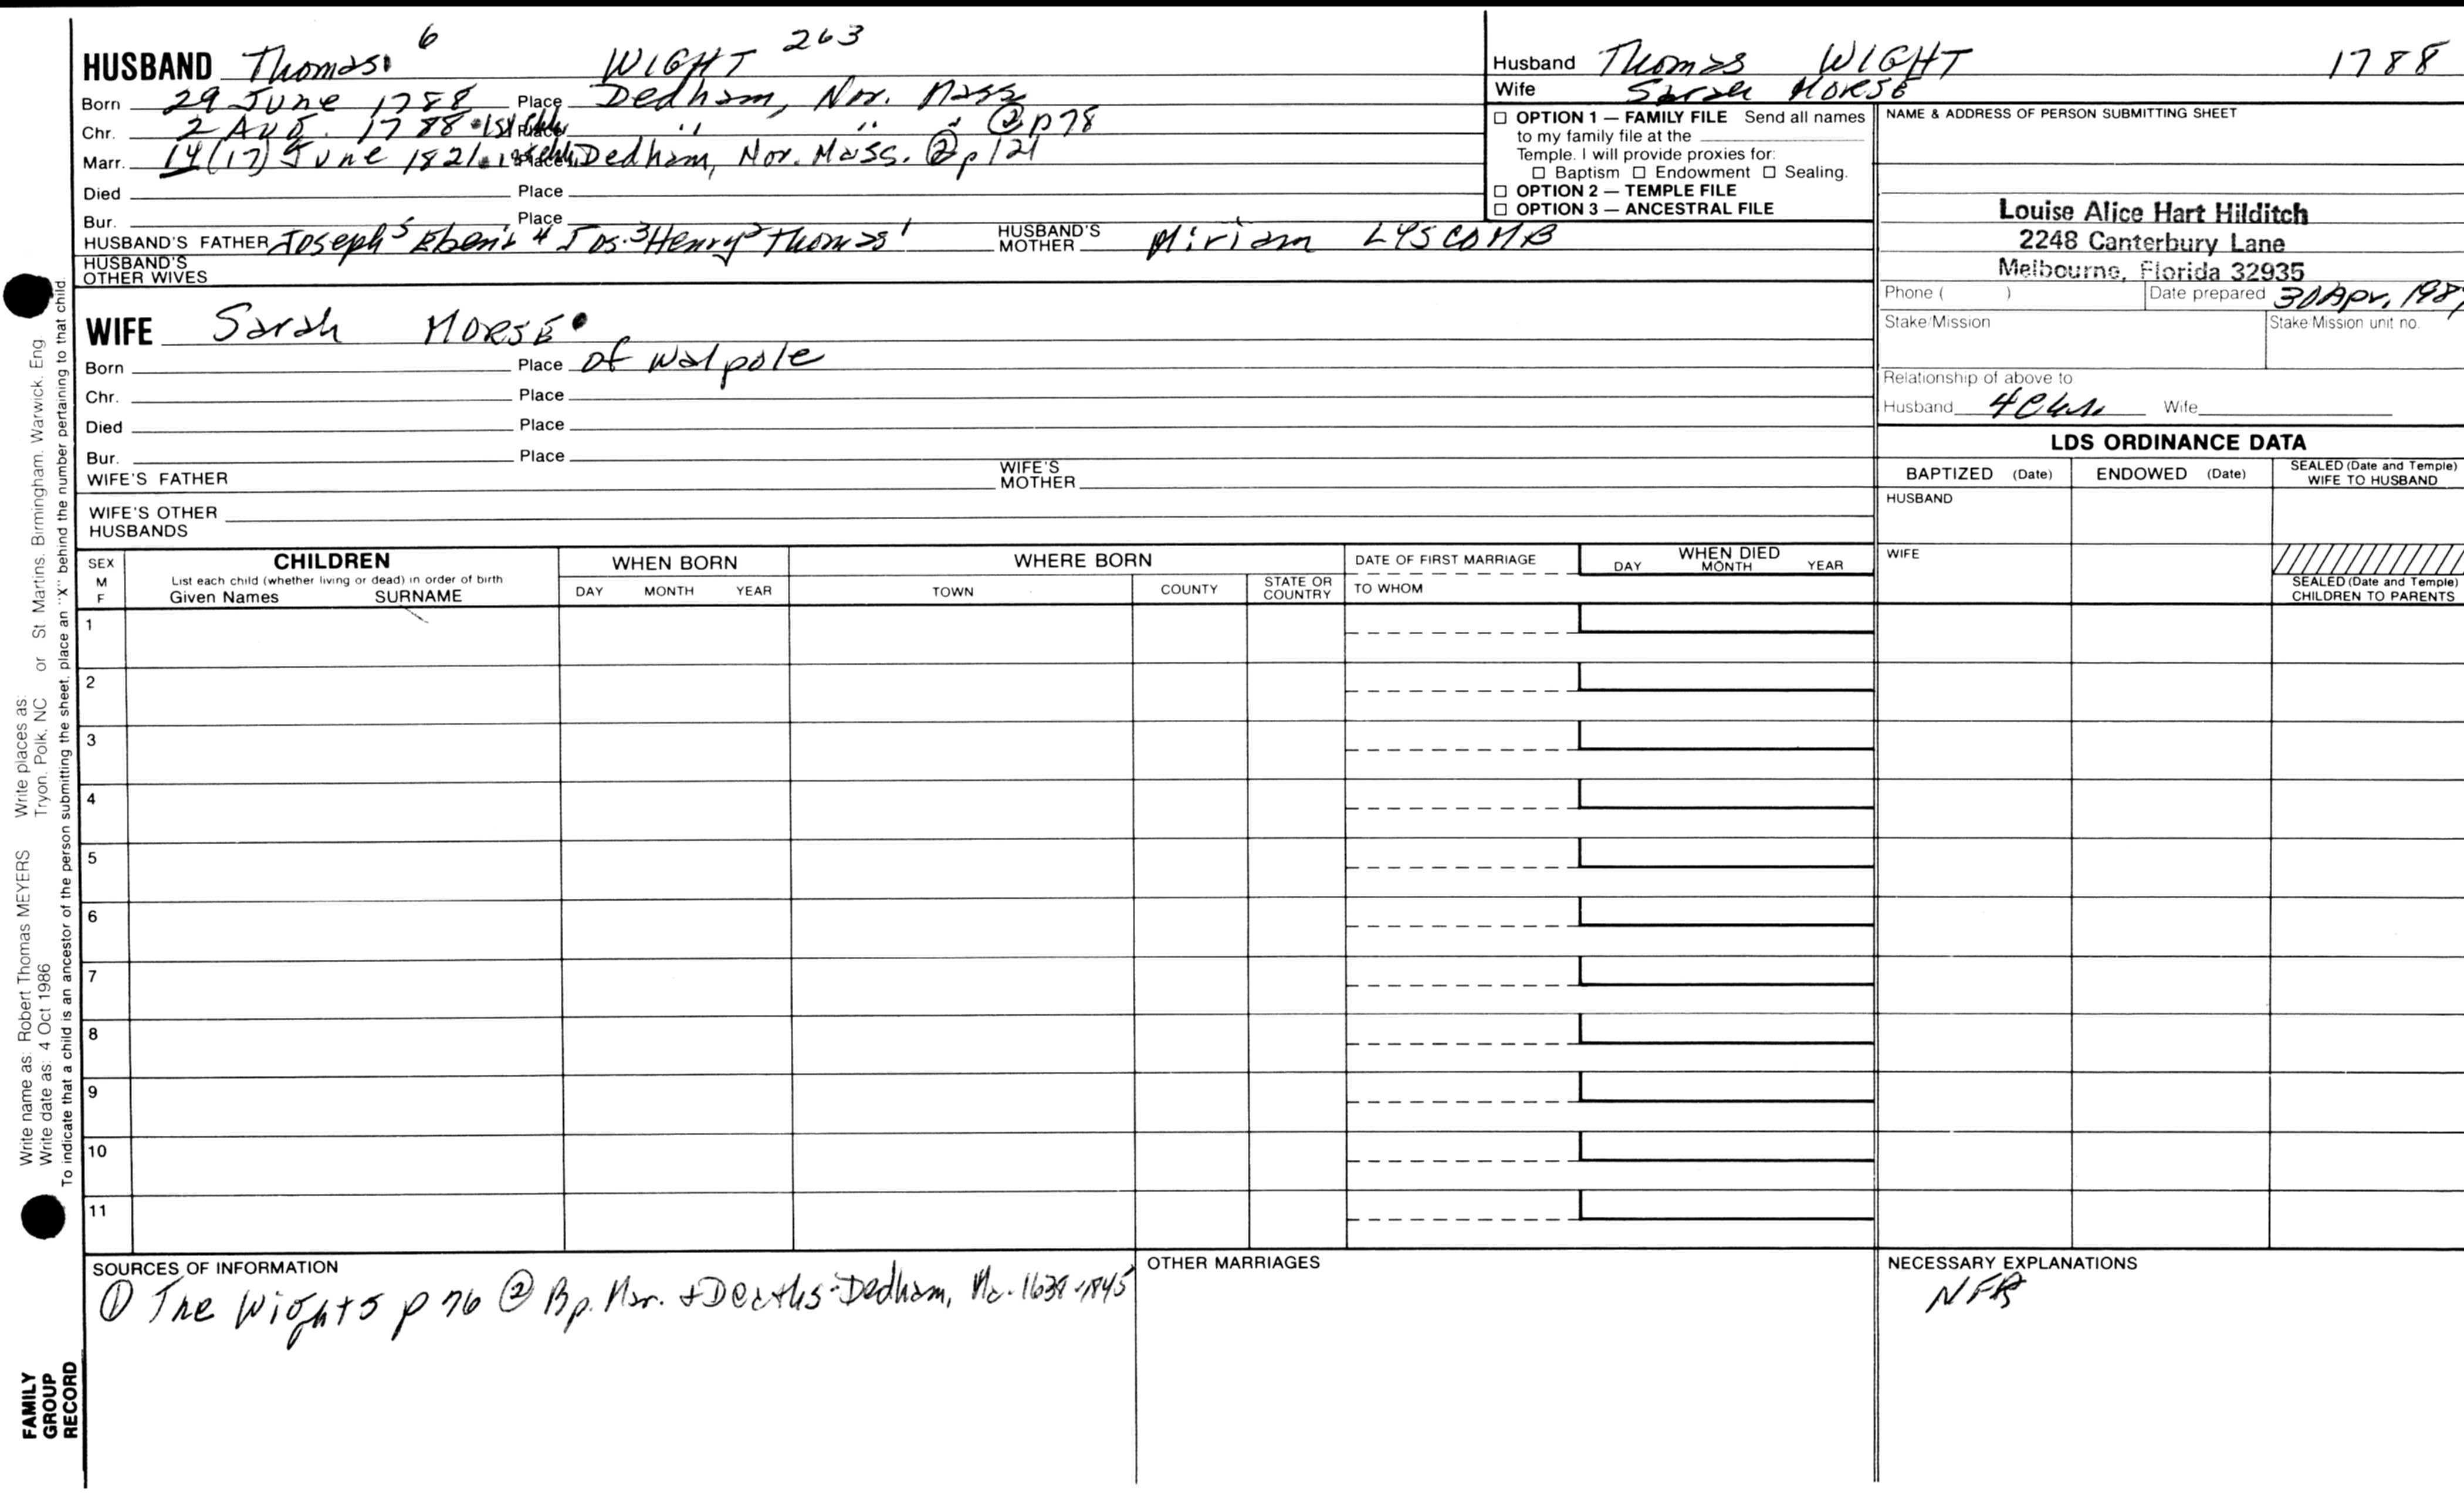 HUSBAND Thomas 6 WIGHT 263
Born 29 June 1788 Place Dedham, Nor. Mass
Chr. 2 Aug. 1788 1st Place " " " @ p78
Marr. 14(17) June 1821 Place Dedham, Nor. Mass. @ p121
Died Place
Bur. Place
HUSBAND'S FATHER Joseph 5 Eben'r 4 Jos. 3 Henry 2 Thomas 1 HUSBAND'S MOTHER Miriam LYSCOMB
HUSBAND'S OTHER WIVES
Husband Thomas WIGHT 1788
Wife Sarah MORSE
☐ OPTION 1 — FAMILY FILE Send all names
to my family file at the
Temple. I will provide proxies for:
☐ Baptism ☐ Endowment ☐ Sealing.
☐ OPTION 2 — TEMPLE FILE
☐ OPTION 3 — ANCESTRAL FILE
NAME & ADDRESS OF PERSON SUBMITTING SHEET
Louise Alice Hart Hilditch
2248 Canterbury Lane
Melbourne, Florida 32935
Phone ( ) Date prepared 30 Apr, 198
Stake/Mission Stake Mission unit no.
Relationship of above to
Husband Wife
WIFE Sarah MORSE
Born Place of Walpole
Chr. Place
Died Place
Bur. Place
WIFE'S FATHER WIFE'S MOTHER
WIFE'S OTHER HUSBANDS
LDS ORDINANCE DATA
BAPTIZED (Date) ENDOWED (Date) SEALED (Date and Temple) WIFE TO HUSBAND
HUSBAND
WIFE
SEALED (Date and Temple) CHILDREN TO PARENTS
SEX M F
CHILDREN
List each child (whether living or dead) in order of birth
Given Names SURNAME
WHEN BORN
DAY MONTH YEAR
WHERE BORN
TOWN COUNTY STATE OR COUNTRY
DATE OF FIRST MARRIAGE
TO WHOM
WHEN DIED
DAY MONTH YEAR
1
2
3
4
5
6
7
8
9
10
11
SOURCES OF INFORMATION
① The Wights p 76 ② Bp. Mar. + Deaths - Dedham, Ma. 1638-1845
OTHER MARRIAGES
NECESSARY EXPLANATIONS
NFR
Write name as: Robert Thomas MEYERS Write places as:
Write date as: 4 Oct 1986 Tryon, Polk, NC or St Martins, Birmingham, Warwick, Eng
To indicate that a child is an ancestor of the person submitting the sheet, place an "X" behind the number pertaining to that child.
FAMILY
GROUP
RECORD